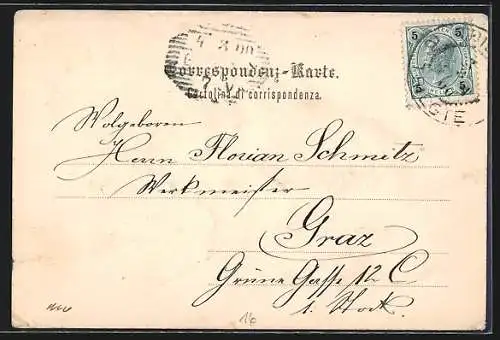 4 3 00
5 5
5 5
Correspondenz-Karte.
Cartolina di corrispondenza.
Wolgeboren
Herrn Florian Schmitz
Werkmeister
Graz
Grüne Gasse 12 C
1. Stock.
16